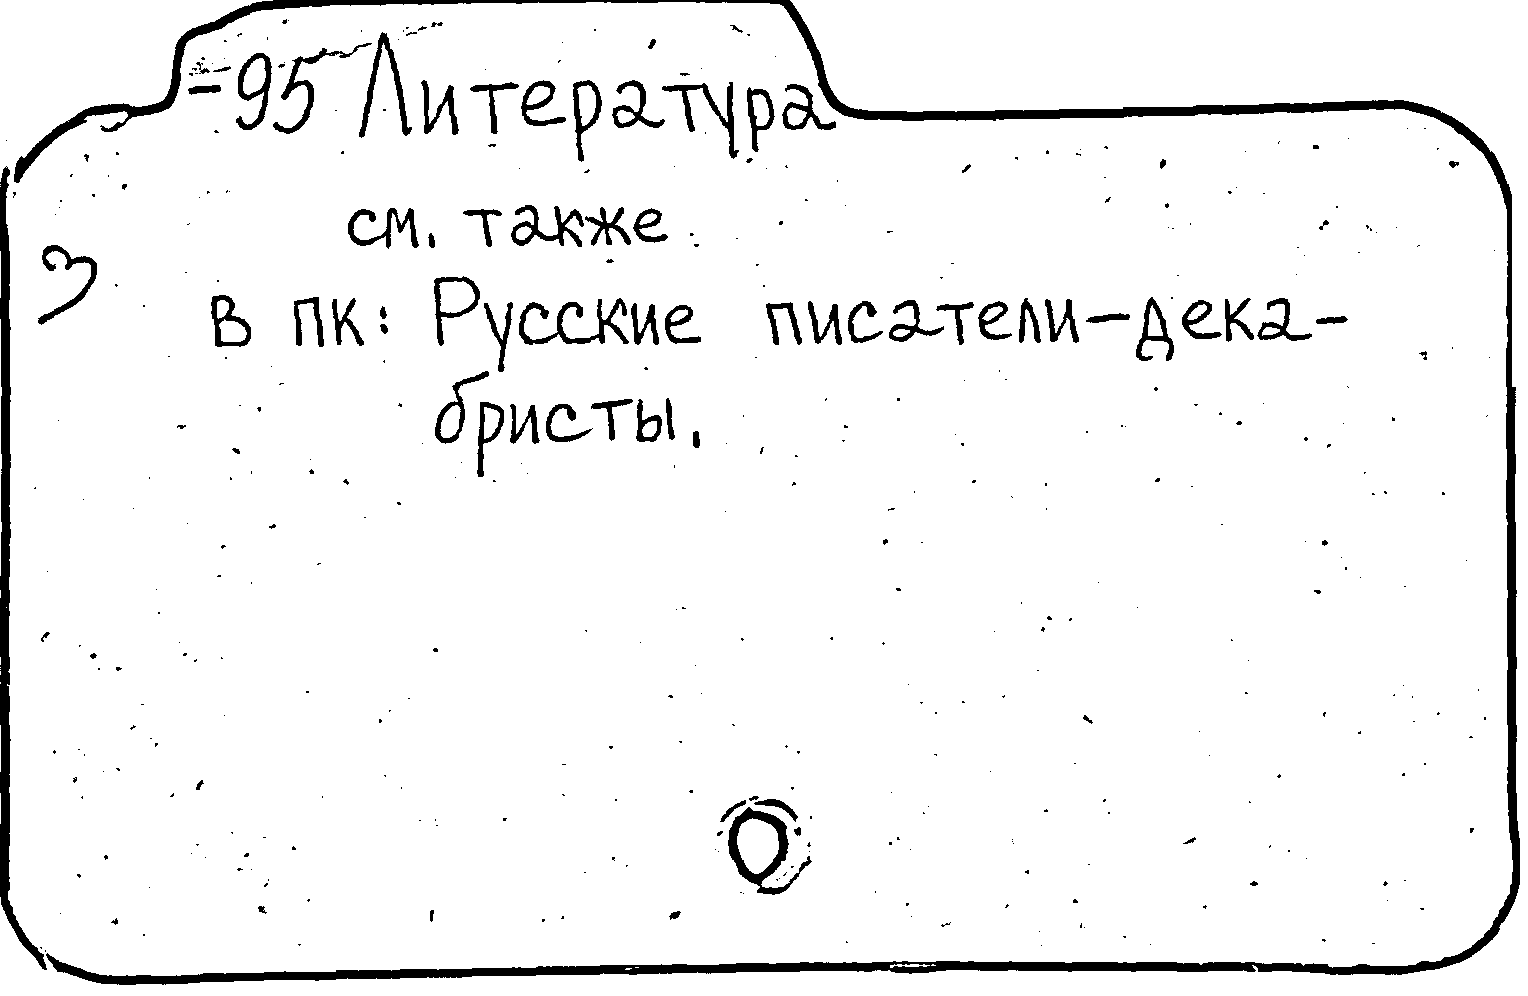 -95 Литература
см. также
в ПК: Русские писатели-дека-
бристы.